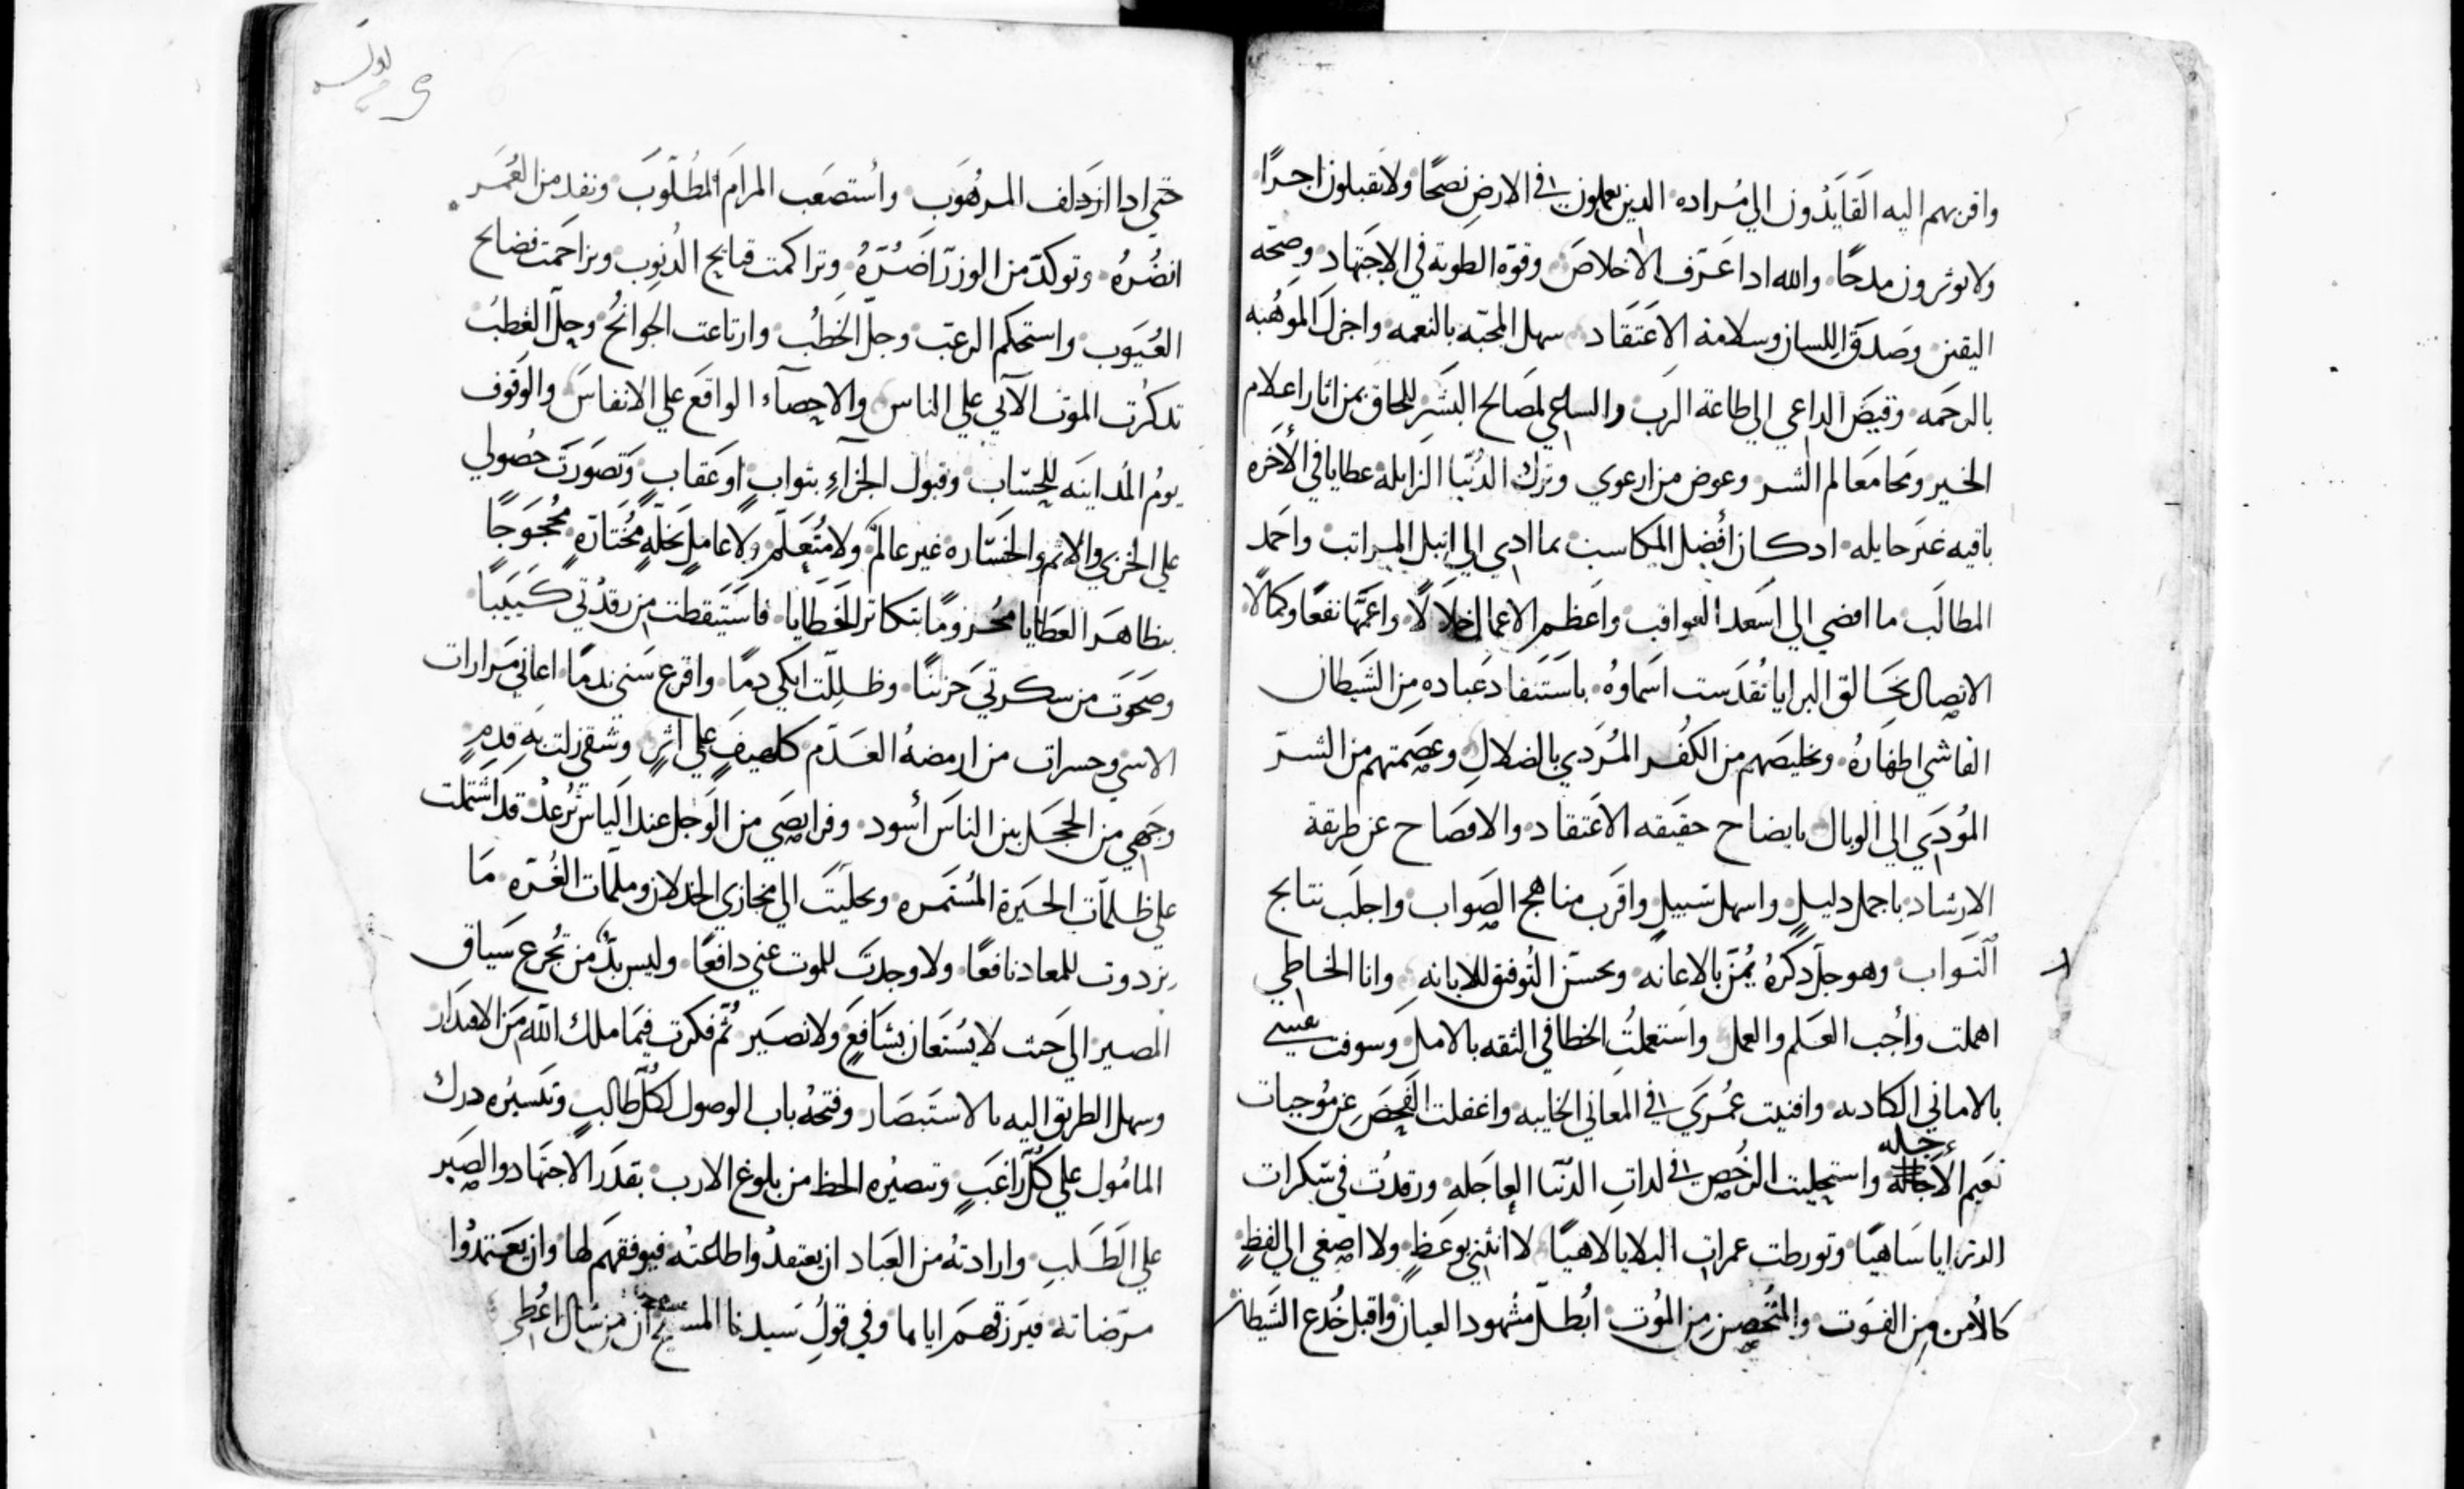 واقربهم اليه القايدون الي مراده الدين يعملون في الارض نصحا ولا يقبلون اجرا
ولا يوثرون مدحا والله ادا عرف الاخلاص وقوة الطوية في الاجتهاد وصحة
اليقين وصدق اللسان وسلامة الاعتقاد سهل المحبه بالنعمه واجزل الموهبه
بالرحمه وقيض الداعي الي طاعة الرب والساعي لمصالح البشر للحاق بمن اثار اعلام
الخير ومحا معالم الشر وعوض من ارعوي وترك الدنيا الزايله عطايا في الاخره
باقيه غير حايله ادكان افضل المكاسب بما ادي الي انبل المراتب واحمد
المطالب ما افضي الي اسعد العواقب واعظم الاعمال خلالا واعمها نفعا وكمالا
الاتصال بخالق البرايا تقدست اسماوه باستنقاد عباده من الشيطان
الفاشي اظهاره وتخليصهم من الكفر المردي بالضلال وعصمتهم من الشر
المودي الي الوبال بايضاح حقيقه الاعتقاد والافصاح عن طريقة
الارشاد باجمل دليل واسهل سبيل واقرب مناهج الصواب واجلب نتايج
الثواب وهو جل دكره يمن بالاعانه وبحسن التوفيق للابانه وانا الخاطي
اهملت واجب العلم والعمل واستعملت الخطا في الثقه بالامل وسوفت نفسي
بالاماني الكادبه وافنيت عمري في المعاني الخايبه واغفلت الفحص عن موجبات
نعيم الاجله واستحليت الرخص في لدات الدنيا العاجله ورقدت في سكرات
الرزايا ساهيا وتورطت غمرات البلايا لاهيا لا انثني بوعظ ولا اصغي الي لفظ
كالامن من الفوت والمتحصن من الموت ابطل مشهود العيان واقبل خدع الشيطان
حتي ادا ازدلف المرهوب واستصعب المرام المطلوب ونفد من العمر
انضره وتوكد من الوزر اضره وتراكمت قبايح الدنوب وتزاحمت فضايح
العيوب واستحكم الرعب وجل الخطب وارتاعت الجوانح وحل العطب
تدكرت الموت الاتي علي الناس والاحصاء الواقع علي الانفاس والوقوف
يوم المداينه للحساب وقبول الجزاء بثواب او عقاب وتصورت حصولي
علي الخزي والاثم والخساره غير عالم ولا متعلم ولا عامل بخلة مختارة محجوجا
بتظاهر العطايا محزوما بتكاثر الخطايا فاستيقظت من رقدتي كييبا
وصحوت من سكرتي حزينا وظللت ابكي دما واقرع سني ندما اعاني مرارات
الاسي وحسرات من ارمضه العدم كلهيف علي اثر وشقي زلت به قدم
وجهي من الخجل بين الناس اسود وفرايصي من الوجل عند الياس ترعد قد اشتملت
علي ظلمات الحيرة المستمره وتجليت الي مخازي الخدلان وملمات الغره ما
تزودت للمعاد نافعا ولا وجدت للموت عني دافعا وليس بد من تجرع سياق
المصير الي حيث لا يستعان بشافع ولا نصير ثم فكرت فيما ملك الله من الاقتدار
وسهل الطريق اليه بالاستبصار وفتحه باب الوصول لكل طالب وتيسيره درك
المامول علي كل راغب وتصيره الحظ من بلوغ الارب بقدر الاجتهاد والصبر
علي الطلب وارادته من العباد ان يعتقدوا طاعته فيوفقهم لها وان يعتمدوا
مرضاته فيرزقهم اياها وفي قول سيدنا المسيح ان من سال اعطي